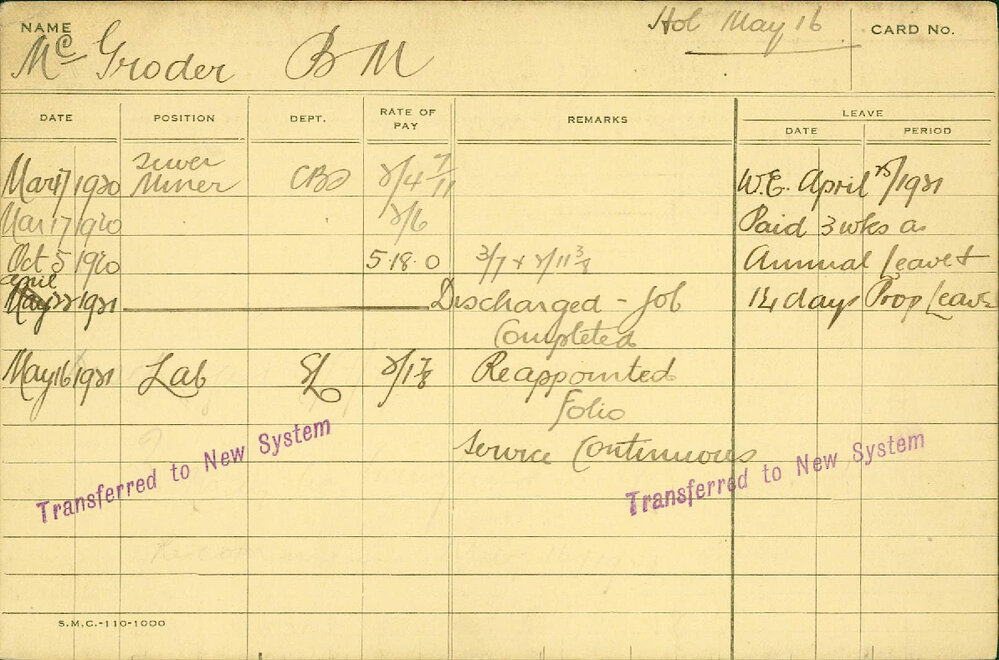 NAME
Mc Groder B M
Hol May 16
CARD No.
DATE POSITION DEPT. RATE OF PAY REMARKS LEAVE
DATE PERIOD
Sewer
Mar 17 1920 Miner 2/4 7/11 W.E. April 25/1921
Mar 17 1920 2/6 Paid 3 wks as
Oct 5 1920 5.18.0 3/7 + 2/11 3/8 Annual Leave +
April
22 1921 Discharged - Job 14 days Prop Leave
Completed
May 16 1921 Lab SL 2/1 7/8 Reappointed
Folio
Service Continuous
Transferred to New System
Transferred to New System
S.M.C.-110-1000